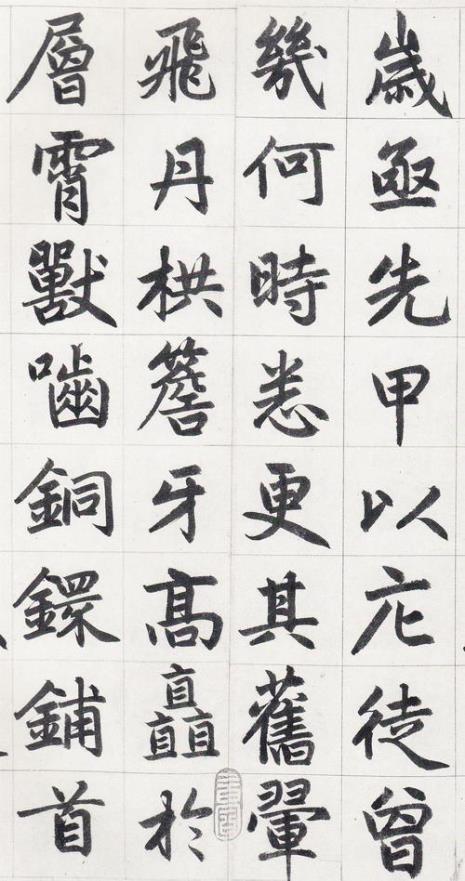 歲亟先甲以庀徒曾
幾何時悉更其舊翬
飛丹栱簷牙髙矗於
層霄獸嚙銅鐶鋪首